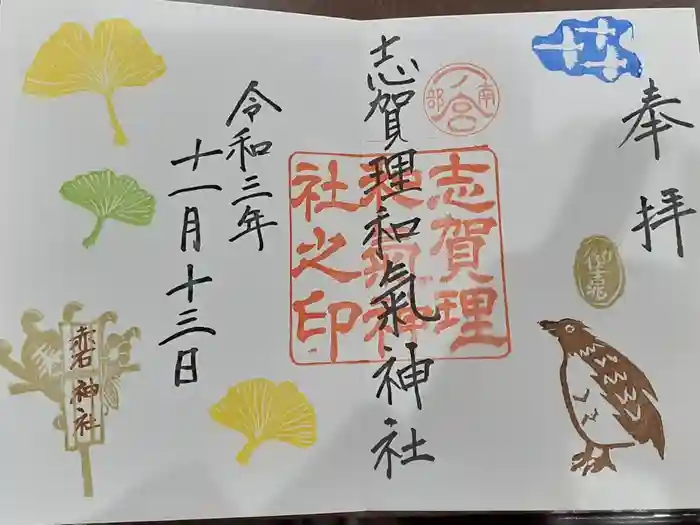 奉拝
一ノ宮
南部
志賀理和氣神社
志賀理
和氣神
社之印
令和三年
十一月十三日
赤石神社